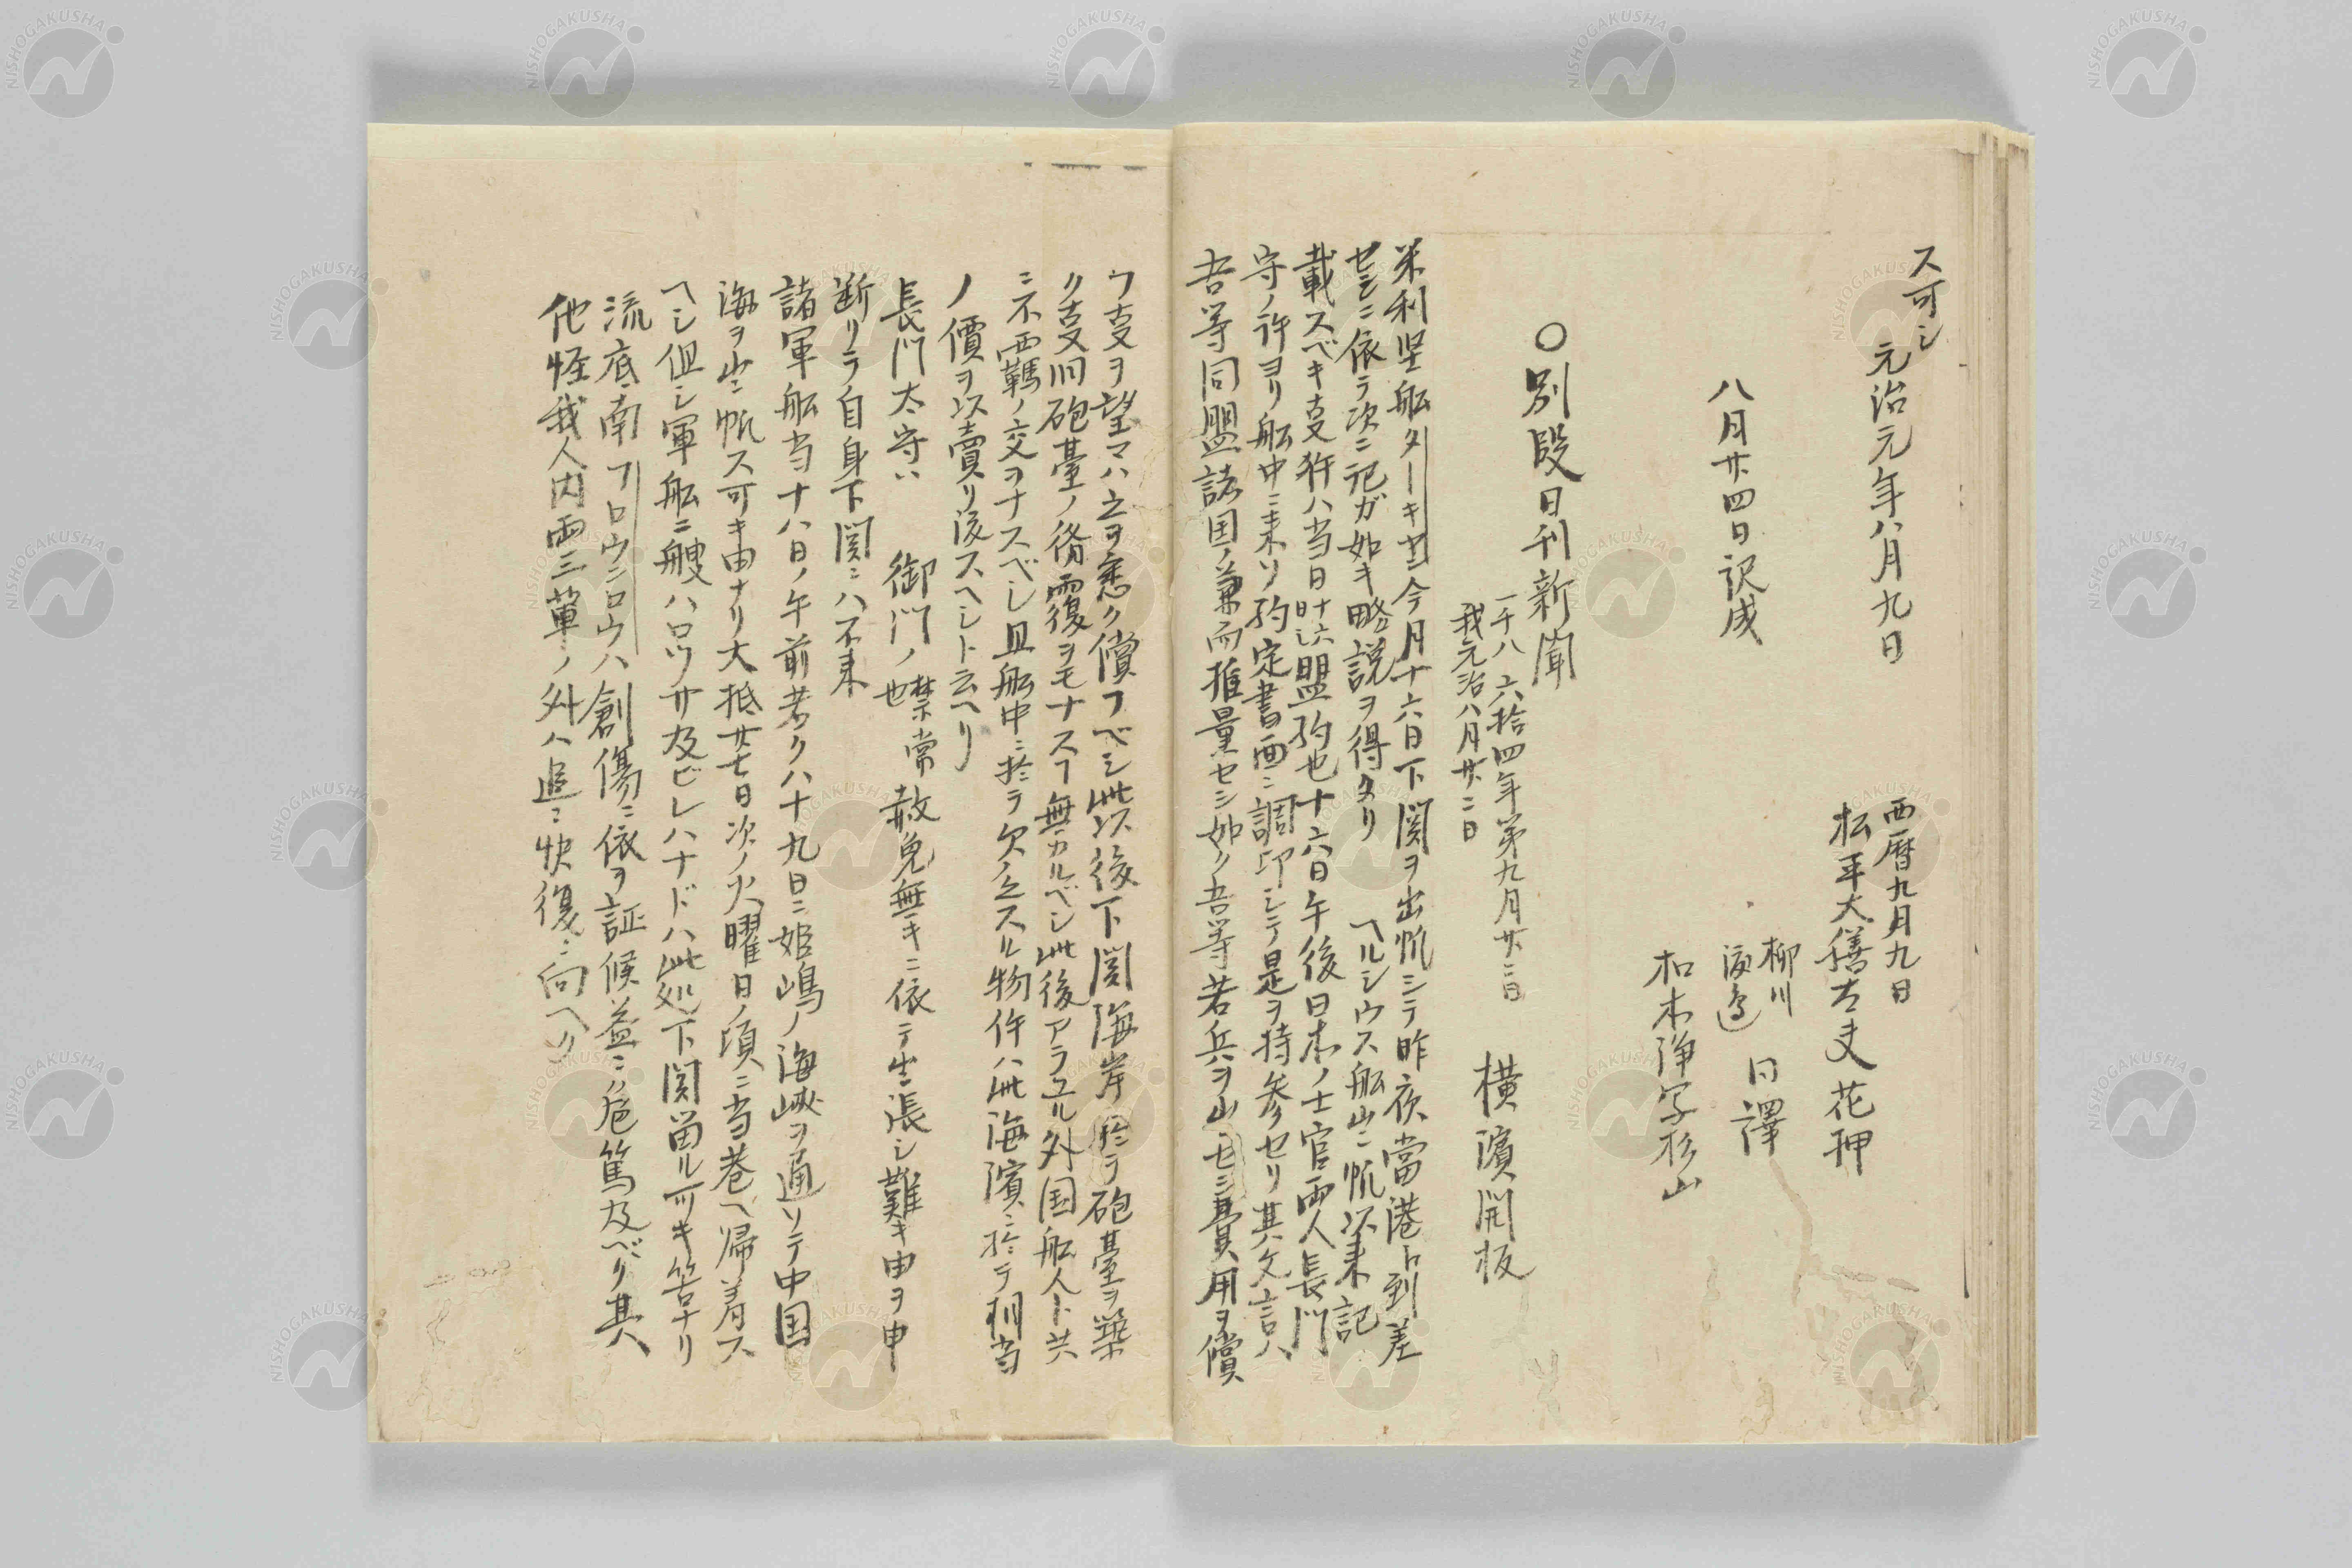 ス可シ
元治元年八月九日
西暦九月九日
松平大膳太夫 花押
八月廿四日訳成
柳川
渡邉
日譯
和木浄写杉山
〇別段日刊新聞
一千八六拾四年第九月廿二日
我元治八月廿二日
横濱開板
米利堅船ターキヤン今月十六日下関ヲ出帆シテ昨夜當港ト到差
セシニ依テ次ニ記ガ如キ略説ヲ得タリ ヘルシウス船出帆以来記
載スベキ叓件ハ当日叶シ盟約也十六日午後日本ノ士官両人長門
守ノ許ヨリ船中ニ来リ約定書面ニ調印シテ是ヲ持参セリ其文言ハ
吾等同盟諸国ノ兼而推量セシ如ク吾等若兵ヲ出セシ費用ヲ償
フ叓ヲ望マハ之ヲ悉ク償フベシ此以後下関海岸ニ於テ砲臺ヲ築
ク叓旧砲臺ノ修覆ヲモナスヿ無カルベシ此後アラユル外国船人ト共
ニ不羈ノ交ヲナスベシ且船中ニ於テ欠乏スル物件ハ此海濱ニ於テ相当
ノ價ヲ以賣リ渡スヘシト云ヘリ
長門太守ハ 御門ノ禁常赦免無キニ依テ出張シ難キ由ヲ申
也
断リテ自身下関ニハ不来
諸軍船当十八日ノ午前若クハ十九日ニ姫嶋ノ海峽ヲ通リテ中国
海ヲ出帆ス可キ由ナリ大抵廿七日次ノ火曜日ノ頃ニ当巷ヘ帰着ス
ヘシ但シ軍船ニ艘ハロツサ及ビレハナドハ此処下関留ル可キ筈ナリ
流底南フロウニロウハ創傷ニ依ヲ証候益々危篤及ベリ其
他怪我人内両三輩ノ外ハ追々快復ニ向ヘリ